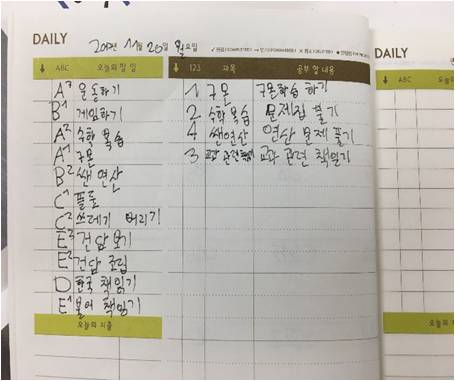 DAILY
2017년 11월 20일 월요일
ABC 오늘의 할 일
A³ 운동하기
B¹ 게임하기
A² 수학 복습
A¹ 구몬
B² 쌘 연산
C¹ 플룻
C² 쓰레기 버리기
E³ 건담 보기
E² 건담 조립
D 한국 책읽기
E¹ 영어 책읽기
오늘의 지출
123 과목 공부 할 내용
1 구몬 구몬학습 하기
2 수학 복습 문제집 풀기
4 쌘연산 연산 문제 풀기
3 교과 관련 책읽기
DAILY